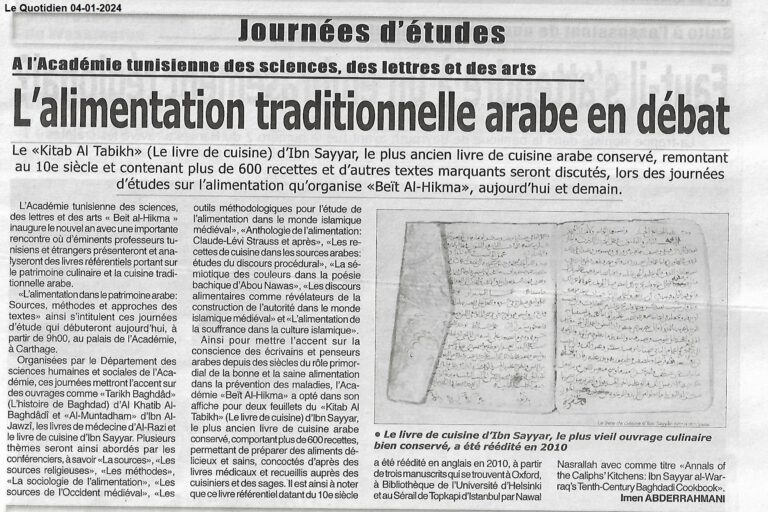 Le Quotidien 04-01-2024
Journées d'études
A l'Académie tunisienne des sciences, des lettres et des arts
L'alimentation traditionnelle arabe en débat
Le «Kitab Al Tabikh» (Le livre de cuisine) d'Ibn Sayyar, le plus ancien livre de cuisine arabe conservé, remontant
au 10e siècle et contenant plus de 600 recettes et d'autres textes marquants seront discutés, lors des journées
d'études sur l'alimentation qu'organise «Beït Al-Hikma», aujourd'hui et demain.
L'Académie tunisienne des sciences,
des lettres et des arts « Beit al-Hikma »
inaugure le nouvel an avec une importante
rencontre où d'éminents professeurs tu-
nisiens et étrangers présenteront et ana-
lyseront des livres référentiels portant sur
le patrimoine culinaire et la cuisine tradi-
tionnelle arabe.
«L'alimentation dans le patrimoine arabe:
Sources, méthodes et approches des
textes» ainsi s'intitulent ces journées
d'étude qui débuteront aujourd'hui, à
partir de 9h00, au palais de l'Académie,
à Carthage.
Organisées par le Département des
sciences humaines et sociales de l'Aca-
démie, ces journées mettront l'accent sur
des ouvrages comme «Tarikh Baghdâd»
(L'histoire de Baghdad) d'Al Khatib Al-
Baghdâdî et «Al-Muntadham» d'Ibn Al-
Jawzî, les livres de médecine d'Al-Razi et
le livre de cuisine d'Ibn Sayyar. Plusieurs
thèmes seront ainsi abordés par les
conférenciers, à savoir «La sources», «Les
sources religieuses», «Les méthodes»,
«La sociologie de l'alimentation», «Les
sources de l'Occident médiéval», «Les
outils méthodologiques pour l'étude de
l'alimentation dans le monde islamique
médiéval», «Anthologie de l'alimentation:
Claude-Lévi Strauss et après», «Les re-
cettes de cuisine dans les sources arabes:
études du discours procédural», «La sé-
miotique des couleurs dans la poésie
bachique d'Abou Nawas», «Les discours
alimentaires comme révélateurs de la
construction de l'autorité dans le monde
islamique médiéval» et «L'alimentation de
la souffrance dans la culture islamique».
Ainsi pour mettre l'accent sur la
conscience des écrivains et penseurs
arabes depuis des siècles du rôle primor-
dial de la bonne et la saine alimentation
dans la prévention des maladies, l'Aca-
démie «Beït Al-Hikma» a opté dans son
affiche pour deux feuillets du «Kitab Al
Tabikh» (Le livre de cuisine) d'Ibn Sayyar,
le plus ancien livre de cuisine arabe
conservé, comportant plus de 600 recettes,
permettant de préparer des aliments dé-
licieux et sains, concoctés d'après des
livres médicaux et recueillis auprès des
cuisiniers et des sages. Il est ainsi à noter
que ce livre référentiel datant du 10e siècle
• Le livre de cuisine d'Ibn Sayyar, le plus vieil ouvrage culinaire
bien conservé, a été réédité en 2010
a été réédité en anglais en 2010, à partir
de trois manuscrits qui se trouvent à Oxford,
à Bibliothèque de l'Université d'Helsinki
et au Sérail de Topkapi d'Istanbul par Nawal
Nasrallah avec comme titre «Annals of
the Caliphs' Kitchens: Ibn Sayyar al-War-
raq's Tenth-Century Baghdadi Cookbook».
Imen ABDERRAHMANI